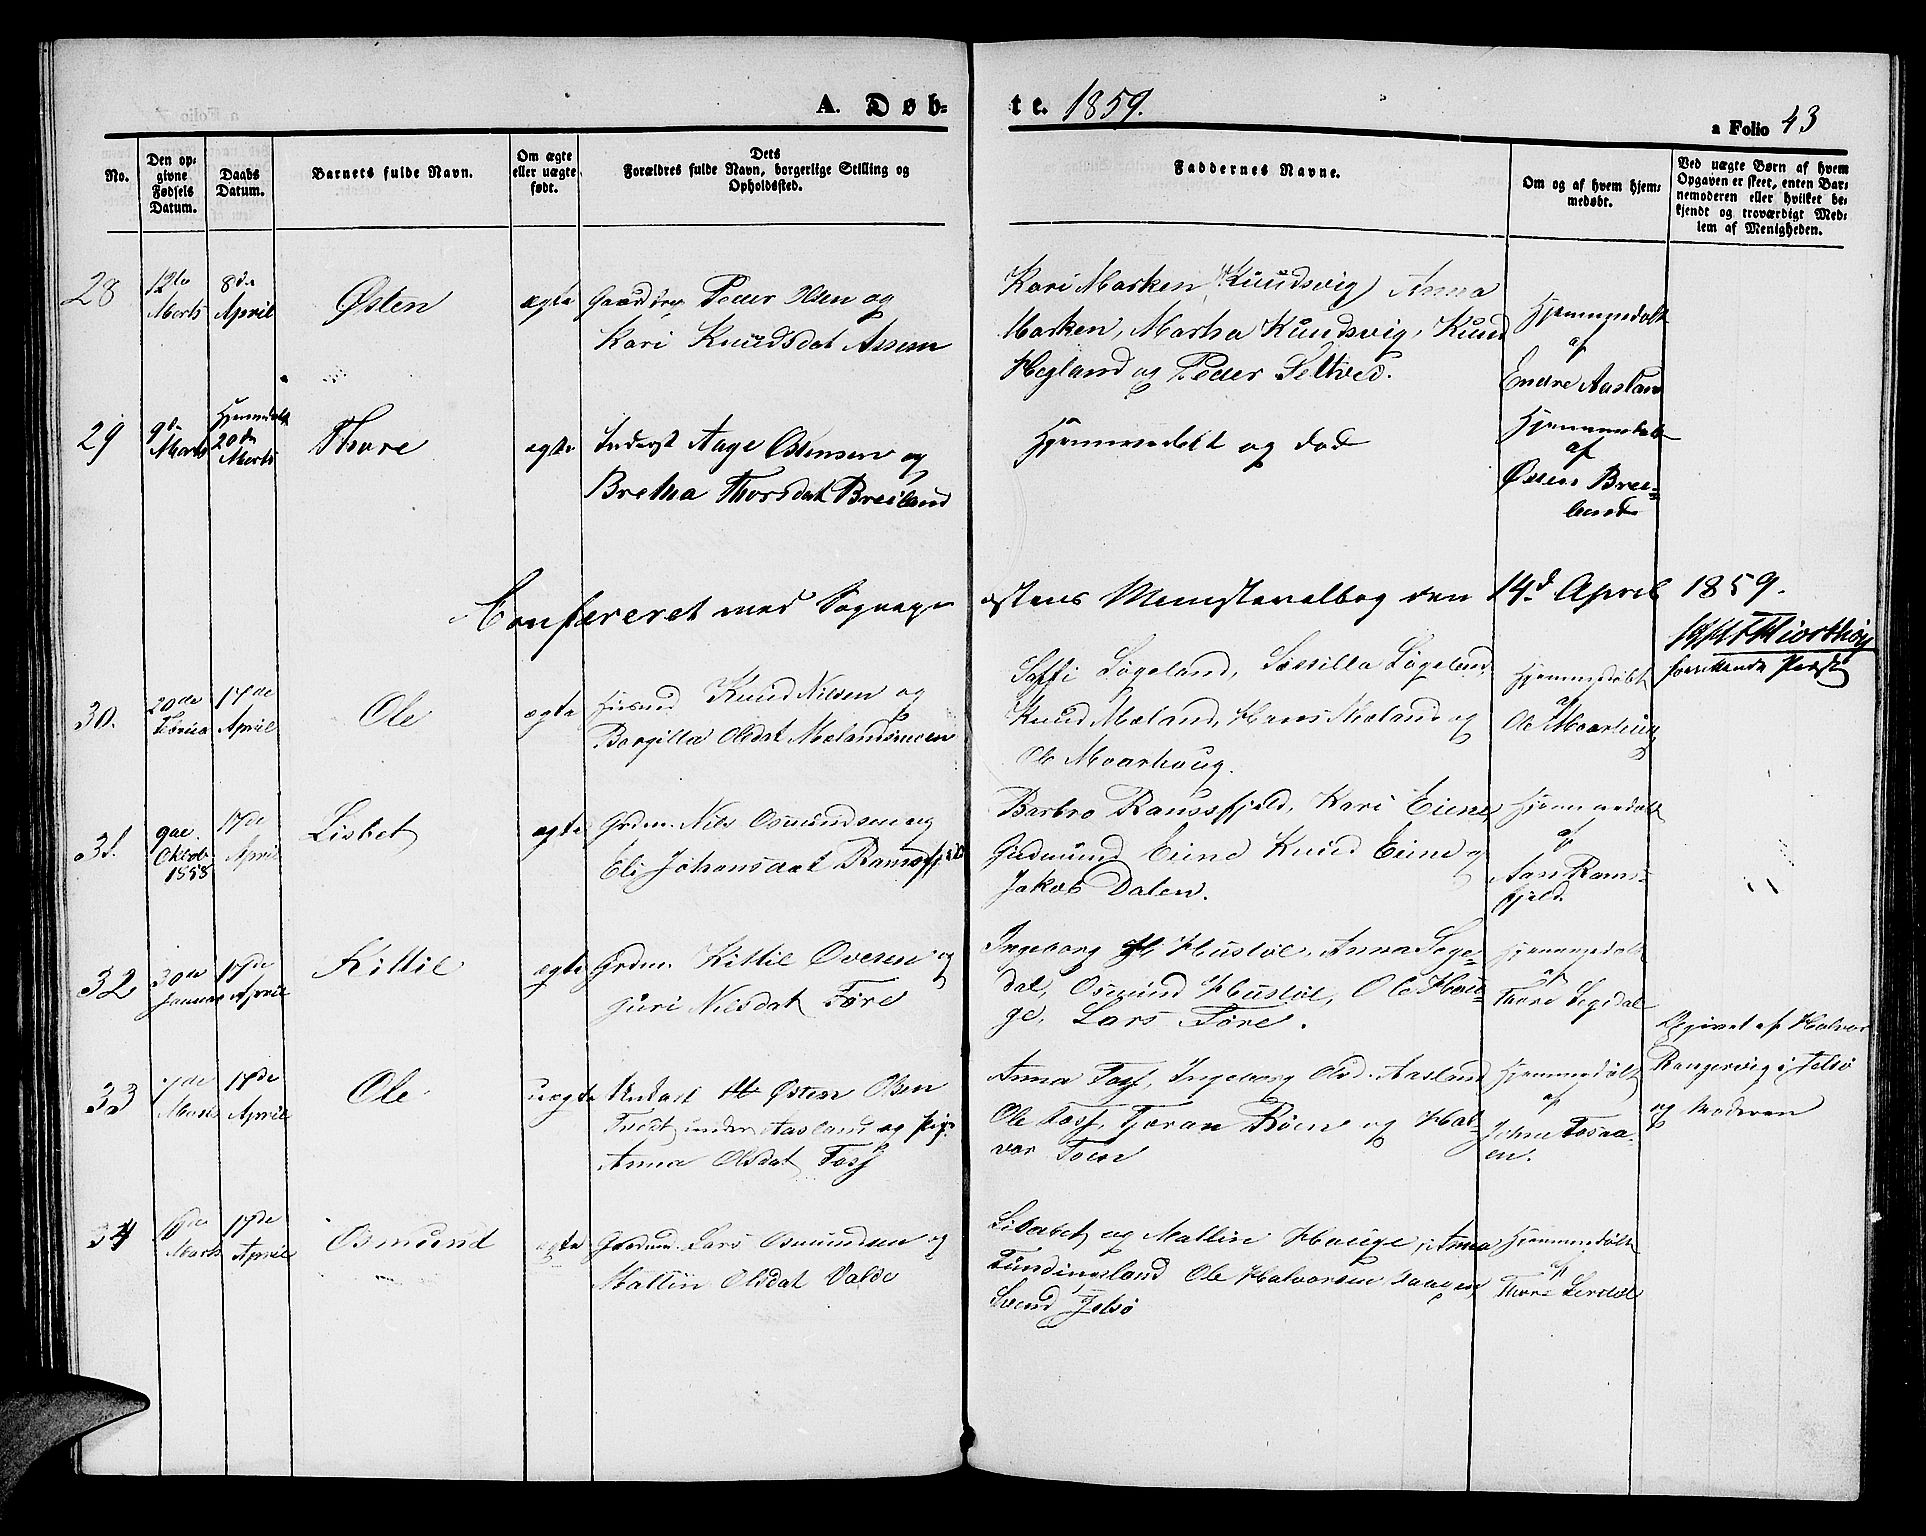 A. Døb-
te. 1859.
a Folio 43
No.
Den op-
givne
Fødsels
Datum.
Daabs
Datum.
Barnets fulde Navn.
Om ægte
eller uægte
født.
Dets
Forældres fulde Navn, borgerlige Stilling og
Opholdssted.
Faddernes Navne.
Om og af hvem hjem-
medøbt.
Ved uægte Børn af hvem
Opgaven er skeet, enten Bar-
nemoderen eller hvilket be-
kjendt og troværdigt Med-
lem af Menigheden.
28
12te
Marts
8de
April
Østen
ægte
Peder Olsen og
Kari Knudsdat
Kari Marken, Anna
Marken, Martha Knudsvig, Knud
Hegland og Peder
Hjemmedøbt
af
Endre Aasland
29
9de
Marts
Hjemmedøbt
20de
Marts
Thore
ægte
Inderst Aage Østensen og
Bretha Thorsdat Breiland
Hjemmedøbt og død
Hjemmedøbt
af
Østen Brei-
land
Confereret med Sognepr
æstens Ministerialbog den 14d April 1859.
30.
20de
17de
April
Ole
ægte
Knud Nilsen og
Borgilla Olsdat Mælandsmoen
Siffi Løgeland, Sissilla Løgeland,
Knud Mæland, Hans Mæland og
Ole Moarhoug.
Hjemmedøbt
af
Ole Moarhoug
31.
9de
Oktob
1858
17de
April
Lisbet
ægte
Grdm. Nils Osmundsen og
Eli Johansdat Ramsfjeld
Barbro Ramsfjeld, Kari Eiene,
Gudmund Eiene Knud Eiene og
Jakob Dalen.
Hjemmedøbt
af
Rams-
fjeld.
32
30de
Januar
17de
April
Kittil
ægte
Grdm. Kittil Ovesen og
Guri Nilsdat Føre
Ingeborg Hustøl, Anna Sege-
dal, Osmund Hustøl, Ole Hau-
ge, Lars Føre.
Hjemmedøbt
af
Thore Segedal
33
7de
Marts
17de
April
Ole
uægte
Østen Olsen
Tveit under Aasland og Pige
Anna Olsdat Foss
Anna Foss, Ingeborg Olsd. Aasland
Ole Foss, Tjeran Røen og Hal-
vor
Hjemmedøbt
af
Opgivet af Halvor
i Jelsø
og Moderen
34
Marts
17de
April
Osmund
ægte
Lars Osmundsen og
Mallin Olsdat Valde
Lisabet og Mallin Hauge, Anna
Ole Halvorsen
Svend Jelsø
Hjemmedøbt
af
Thore